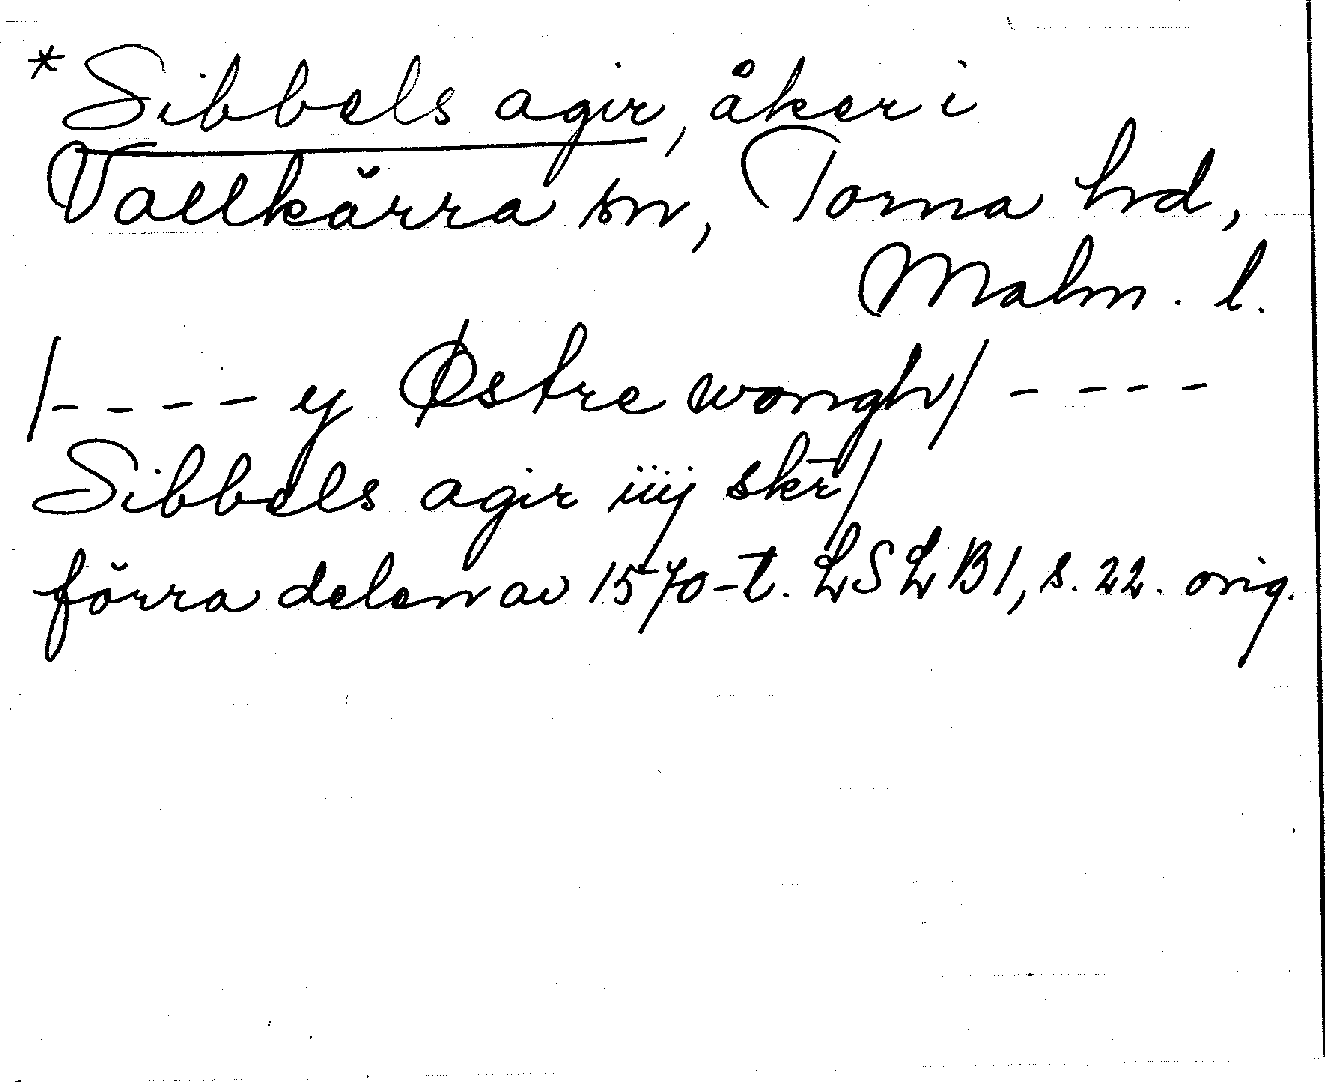 *Sibbels agir, åker i
Vallkärra sn, Torna hd,
Malm. l.
/---- y Østre wongh/ ----
Sibbels agir iiij skr̄/
förra delen av 1570-t. LSLB1, s. 22. orig.